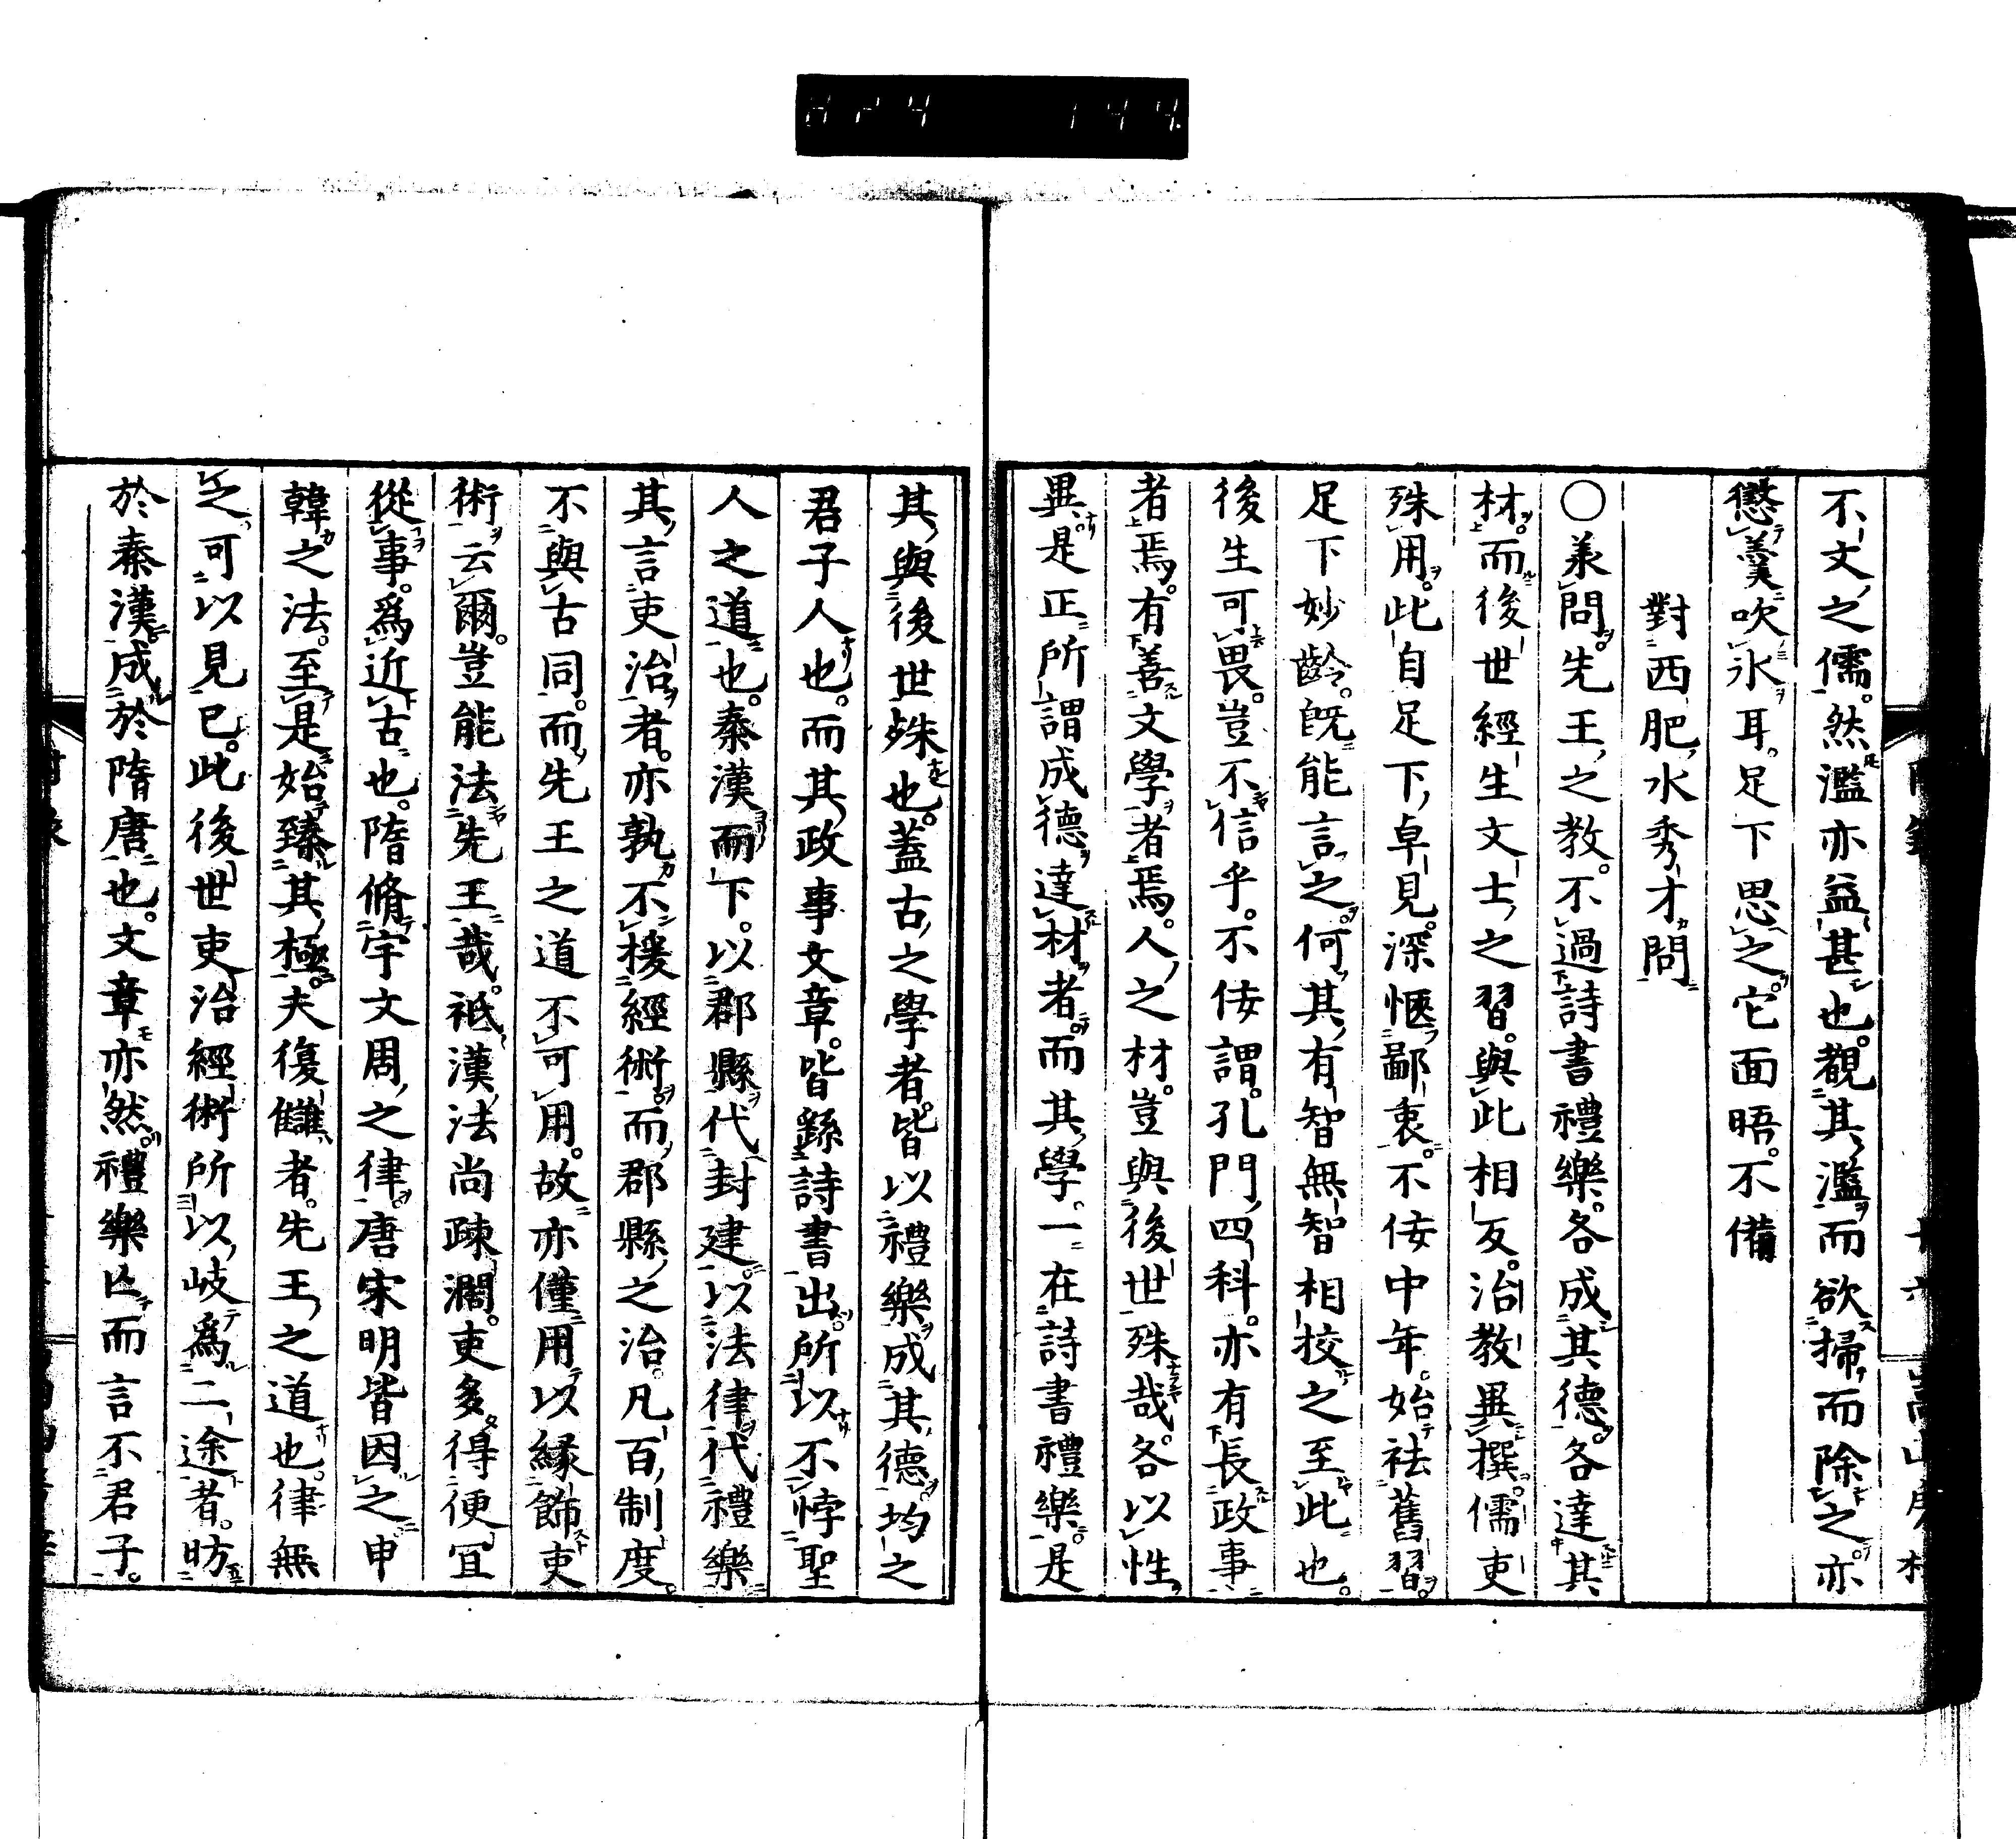 不文之儒。然濫亦益甚也。覩其濫而欲掃而除之。亦
懲羹吹氷耳。足下思之。它面晤。不備
對西肥水秀才問
○羕問。先王之教。不過詩書禮樂。各成其德。各達其
材。而後世經生文士之習。與此相反。治教異撰。儒吏
殊用。此自足下卓見。深愜鄙衷。不佞中年。始祛舊習。
足下妙齡。既能言之。何其有智無智相挍之至此也。
後生可畏。豈不信乎。不佞謂。孔門四科。亦有長政事
者焉。有善文學者焉。人之材。豈與後世殊哉。各以性
異。是正所謂成德達材者。而其學。一在詩書禮樂。是
其與後世殊也。蓋古之學者。皆以禮樂成其德。均之
君子人也。而其政事文章。皆繇詩書出。所以不悖聖
人之道也。秦漢而下。以郡縣代封建。以法律代禮樂
其言吏治者。亦孰不援經術。而郡縣之治。凡百制度。
不與古同。而先王之道不可用。故亦僅用以緣飾吏
術云爾。豈能法先王哉。祗漢法尚疎濶。吏多得便冝
從事。爲近古也。隋脩宇文周之律。唐宋明皆因之。申
韓之法。至是始臻其極。夫復讎者。先王之道也。律無
之。可以見已。此後世吏治經術所以岐爲二途者。昉
於秦漢。成於隋唐也。文章亦然。禮樂亾而言不君子。